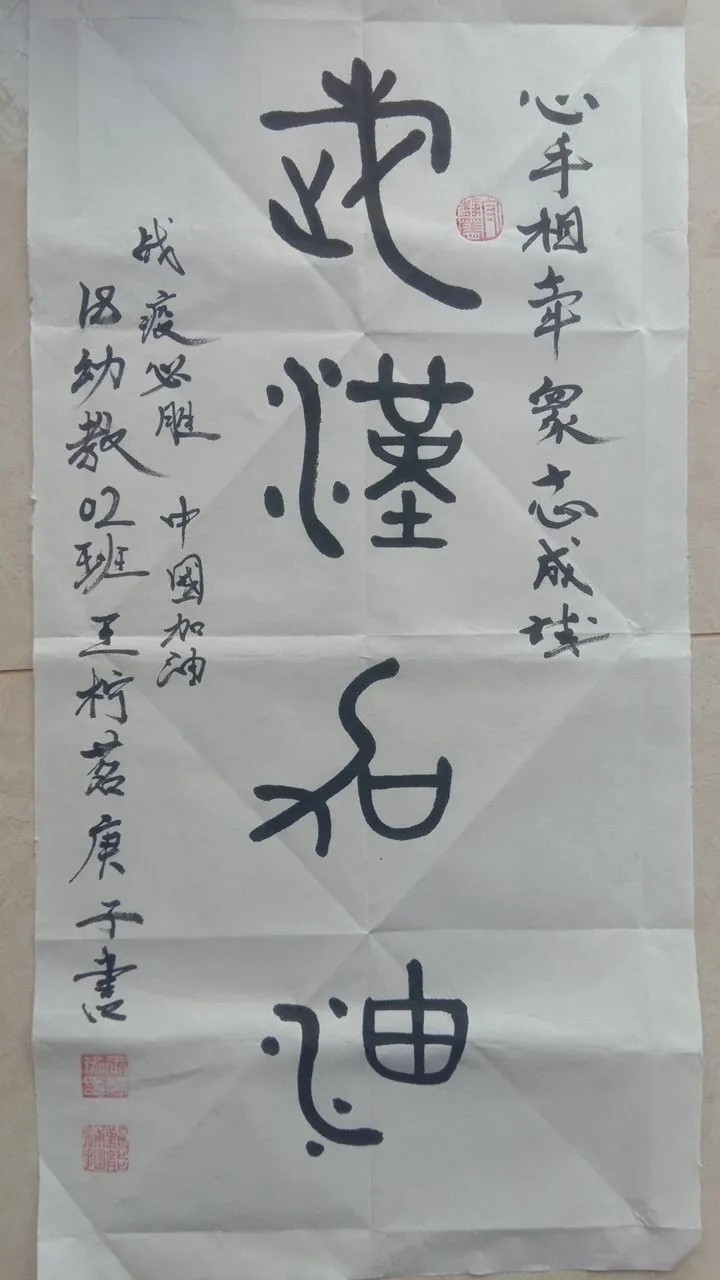 心手相牵眾志成城
武漢加油
战疫必胜 中國加油
18幼教02班王柠茗庚子書